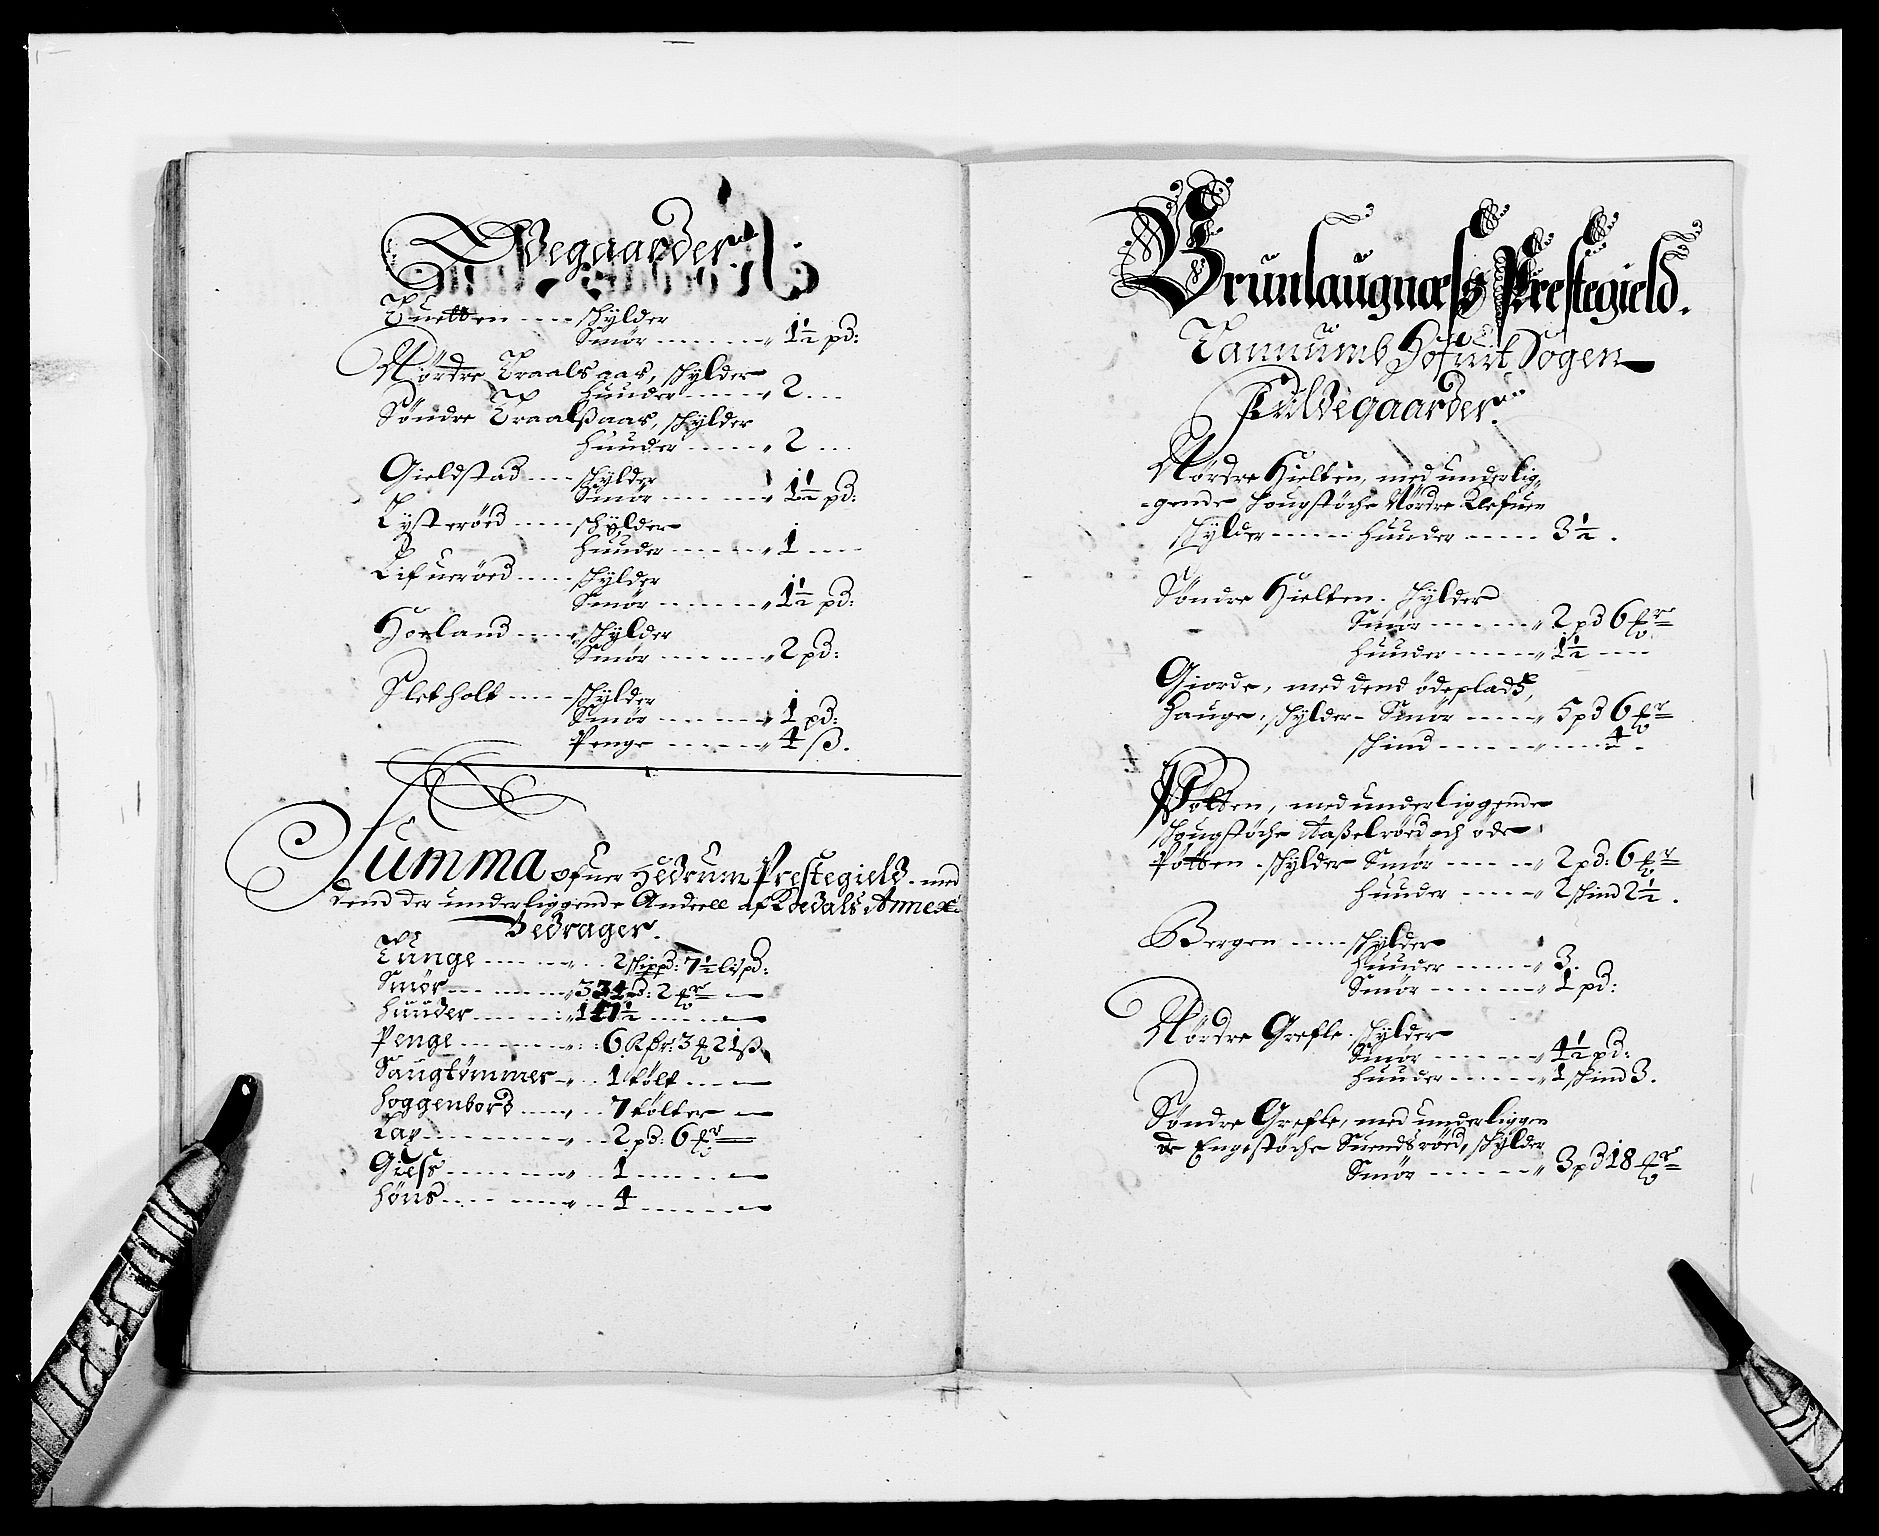 Ødegaarder
Tuetten ---- schylder
Smør ------ 1½ pd:
Nørdre Traalsaas, schylder
Huuder ----- 2 ---
Søndre Traalsaas, schylder
Huuder ----- 2 ---
Gieldstad ---- schylder
Smør ------ 1½ pd:
Lysterød ---- schylder
Huuder ----- 1 ----
Lifuerød ---- schylder
Smør ------ 1½ pd:
Hoeland ---- schylder
Smør ------ 2 pd:
Sletholt ---- schylder
Smør ------ 1 pd:
Penge ----- 4 ß.
Summa ofuer Hedrum Prestegield med
dend der underliggende Andeell af Kodals Annex
Bedrager.
Tunge ------ 2 schippd: 7½ lispd:
Smør ------ 334 pd: 2
Huuder ------ 147½ ---
Penge ------ 6 Rdr: 3 21 ß
Saugtømmer -- 1 tolt ---
Hoggenbord ---- 7 tolter --
Tap ------ 2 pd: 6
Giess ------ 1 ---
Høns ------ 4 ---
Brunlaugnæss Prestegield.
Tannumb Hofuit Sogen
Fuldegaarder.
Nørdre Hielten, med underlig-
-gende Hougstøche Nørdre Klefuen
schylder ---- Huuder ---- 3½.
Søndre Hielten. schylder
Smør ----- 2 pd 6
Huuder ----- 1½ ---
Giorde, med dend ødeplads,
Hauge, schylder - Smør ---- 5 pd 6
schind -------- 4 -
Pøtten, med underliggende
schougstøche Hasselrød och øde
Pøtten. schylder Smør ---- 2 pd: 6
Huuder ---- 2 schind 2½.
Bergen ---- schylder
Huuder ----- 3.
Smør ----- 1 pd:
Nørdre Grefle. schylder
Smør ----- 4½ pd:
Huuder ----- 1 schind 3.
Søndre Grefle, med underliggen
de Engestøche Suendsrød, schylder
Smør ----- 3 pd 18